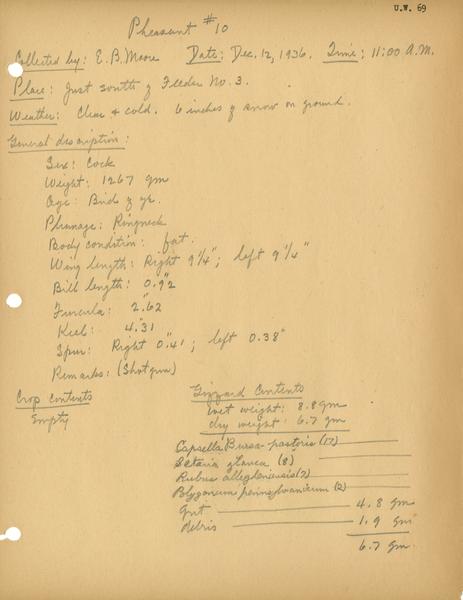 U.W. 69
Pheasant #10
Collected by: E.B. Moore Date: Dec. 12, 1936. Time: 11:00 A.M.
Place: Just south of Feeder No. 3.
Weather: Clear & cold. 6 inches of snow on ground.
General description:
Sex: Cock
Weight: 1267 gm
Age: Bird of yr.
Plumage: Ringneck
Body condition: fat.
Wing length: Right 9 1/4"; left 9 1/4"
Bill length: 0."92
Furcula: 2."62
Keel: 4."31
Spur: Right 0."41; left 0.38"
Remarks: (Shotgun)
Crop contents
Empty
Gizzard Contents
wet weight: 8.8 gm
dry weight: 6.7 gm
Capsella Bursa-pastoris (17)
Setaria glauca (8)
Rubus allegheniensis (2)
Polygonum pennsylvanicum (2)
Grit 4.8 gm
debris 1.9 gm
6.7 gm.